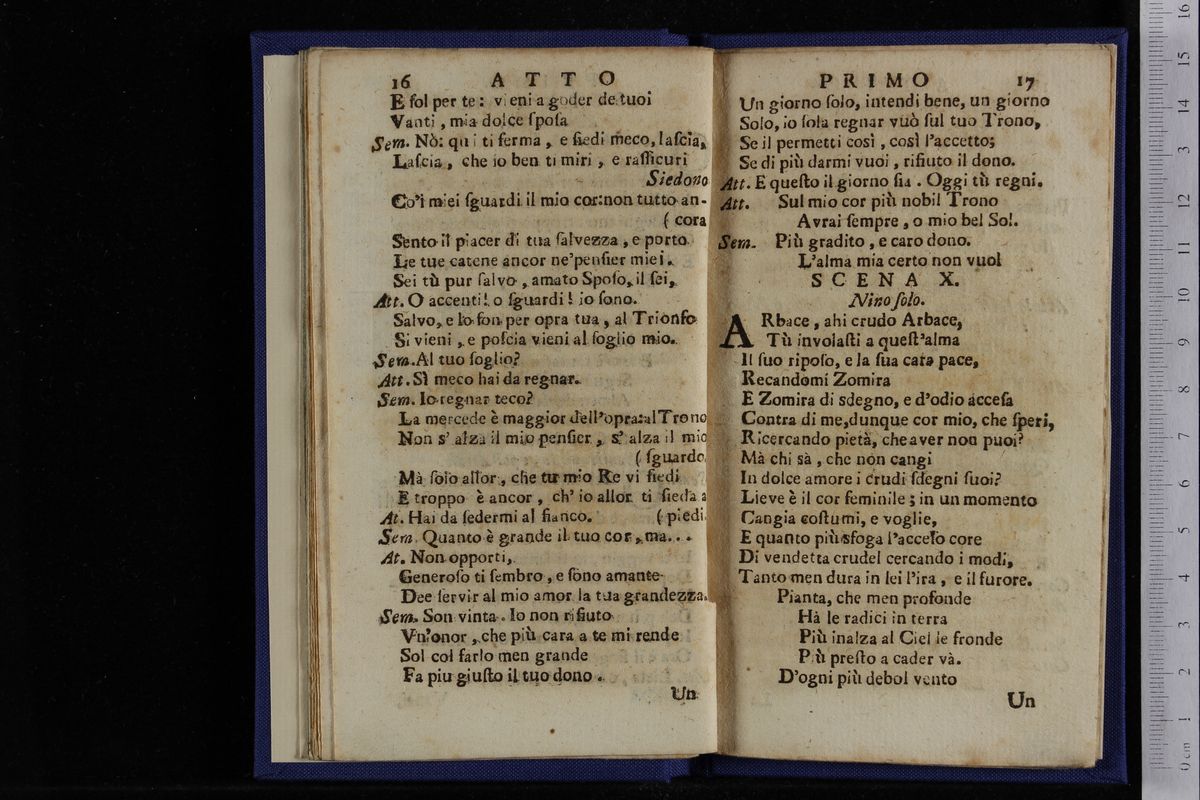 16 ATTO
E ſol per te: vieni a goder de tuoi
Vanti, mia dolce ſpoſa
Sem. Nò: qui ti ferma, e ſiedi meco, laſcia,
Laſcia, che io ben ti miri, e raſſicuri
Siedono
Co'i miei ſguardi il mio cor: non tutto an-
( cora
Sento il piacer di tua ſalvezza, e porto
Le tue catene ancor ne'penſier miei.
Sei tù pur ſalvo, amato Spoſo, il ſei,
Att. O accenti! o ſguardi! io ſono.
Salvo, e lo ſon per opra tua, al Trionfo
Si vieni, e poſcia vieni al ſoglio mio.
Sem. Al tuo ſoglio?
Att. Sì meco hai da regnar.
Sem. Io regnar teco?
La mercede è maggior dell'opra: al Trono
Non s'alza il mio penſier, s'alza il mio
( ſguardo
Mà ſolo allor, che tu mio Re vi ſiedi
E troppo è ancor, ch'io allor ti ſieda a
At. Hai da ſedermi al fianco. ( piedi.
Sem. Quanto è grande il tuo cor, ma...
At. Non opporti,
Generoſo ti ſembro, e ſono amante
Dee ſervir al mio amor la tua grandezza.
Sem. Son vinta. Io non rifiuto
Vn'onor, che più cara a te mi rende
Sol col farlo men grande
Fa piu giuſto il tuo dono.
Un
PRIMO 17
Un giorno ſolo, intendi bene, un giorno
Solo, io ſola regnar vuò ſul tuo Trono,
Se il permetti così, così l'accetto;
Se di più darmi vuoi, rifiuto il dono.
Att. E queſto il giorno ſia. Oggi tù regni.
Att. Sul mio cor più nobil Trono
Avrai ſempre, o mio bel Sol.
Sem. Più gradito, e caro dono.
L'alma mia certo non vuol
SCENA X.
Nino ſolo.
ARbace, ahi crudo Arbace,
Tù involaſti a queſt'alma
Il ſuo ripoſo, e la ſua cara pace,
Recandomi Zomira
E Zomira di sdegno, e d'odio acceſa
Contra di me, dunque cor mio, che ſperi,
Ricercando pietà, che aver non puoi?
Mà chi sà, che non cangi
In dolce amore i crudi ſdegni ſuoi?
Lieve è il cor feminile; in un momento
Cangia coſtumi, e voglie,
E quanto più sfoga l'acceſo core
Di vendetta crudel cercando i modi,
Tanto men dura in lei l'ira, e il furore.
Pianta, che men profonde
Hà le radici in terra
Più inalza al Ciel le fronde
Più preſto a cader và.
D'ogni più debol vento
Un
0 cm 1 2 3 4 5 6 7 8 9 10 11 12 13 14 15 16